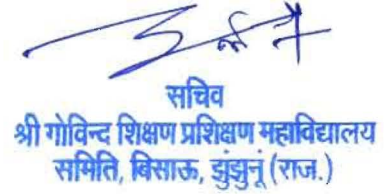 सचिव
श्री गोविन्द शिक्षण प्रशिक्षण महाविद्यालय
समिति, बिसाऊ, झुंझुनूं (राज.)